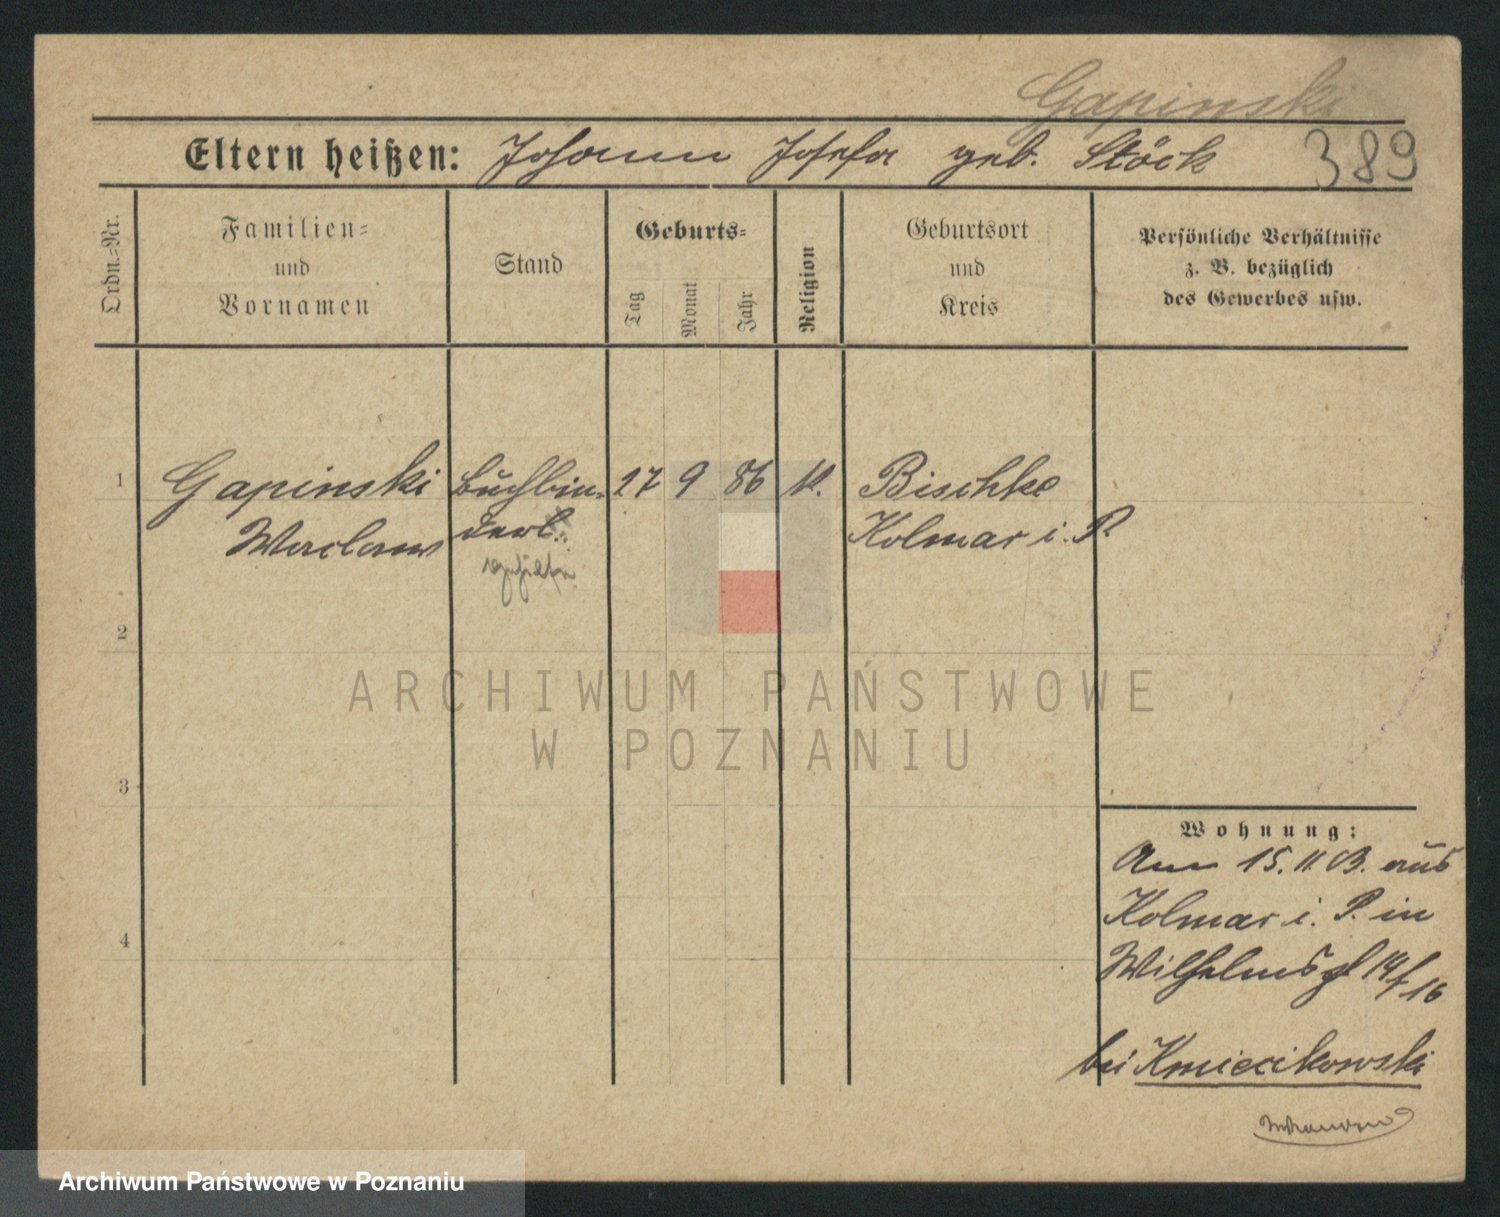 Gapinski
Eltern heißen: Johann Josefa geb. Stöck 389
Ordn.-Nr.
Familien- und Vornamen
Stand
Geburts-
Tag
Monat
Jahr
Religion
Geburtsort und Kreis
Persönliche Verhältnisse
z. B. bezüglich
des Gewerbes usw.
1 Gapinski Buchbin- 27 9 86 K. Bischke
Waclaw Kolmar i. P.
2
3
4
Wohnung:
Am 15. 11. aus
Kolmar i. P. in
14/16
bei Kmiecikowski
ARCHIWUM PAŃSTWOWE
W POZNANIU
Archiwum Państwowe w Poznaniu